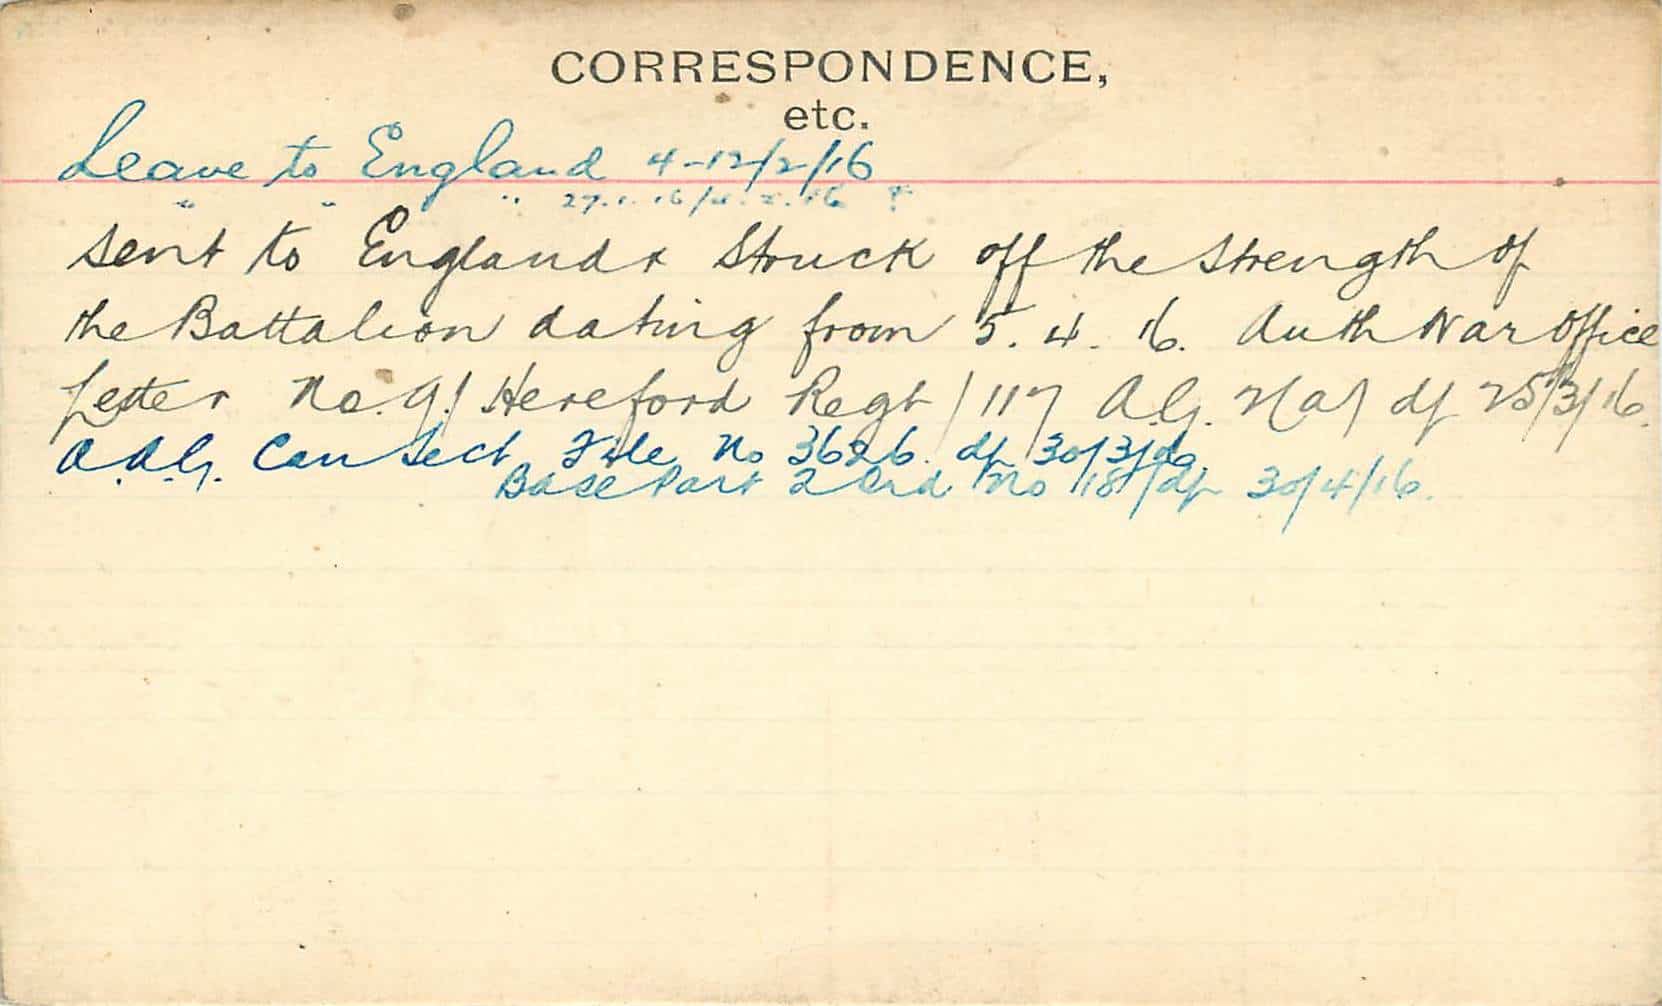 CORRESPONDENCE,
etc.
Leave to England 4-12/2/16
" " " 27.1.16/4.2.16 ?
Sent to England & Struck off the Strength of
the Battalion dating from 5.4.16. Auth War Office
Letter No. 9/Hereford Regt/117 A.G. df 25/3/16.
A.A.G. Can Sect File No 3626. df 30/3/16.
Base Part 2 Ord No 18 df 30/4/16.